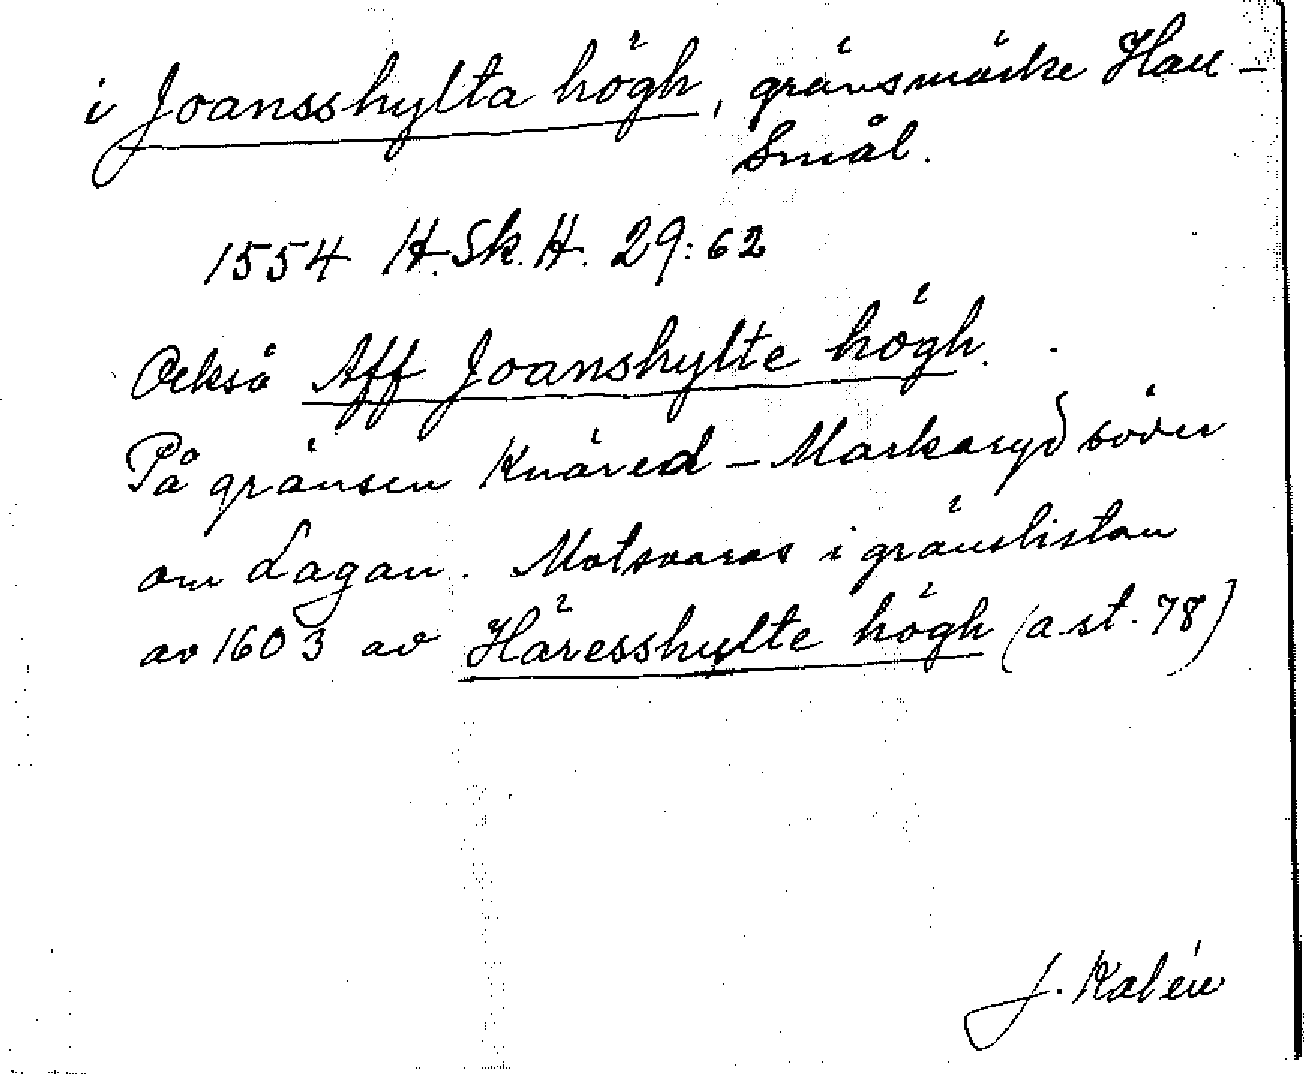 i Joansshylta högh, gränsmärke Hall-
Smål.
1554 H.Sk.H. 29:62
Också Aff Joanshylte högh.
På gränsen Knäred - Markaryd söder
om Lagan. Motsvaras i gränslistan
av 1603 av Häresshylte högh (a.st. 78)
J. Kalén